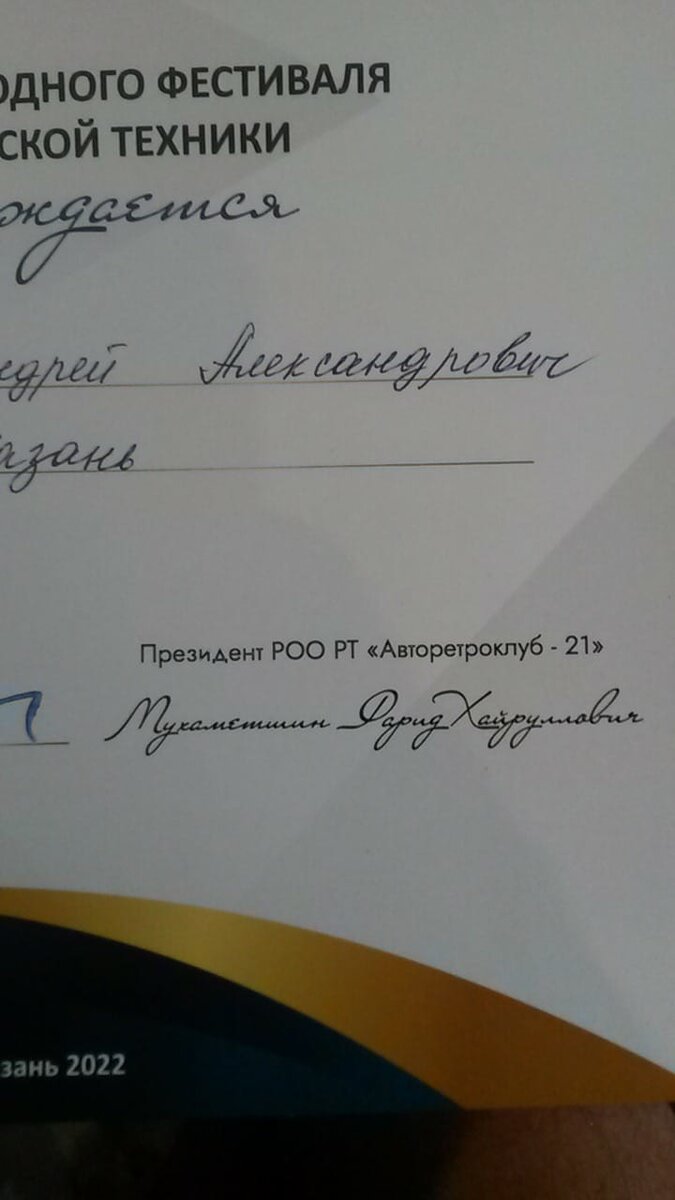 ОДНОГО ФЕСТИВАЛЯ
СКОЙ ТЕХНИКИ
ждается
ндрей Александрович
азань
Президент РОО РТ «Авторетроклуб - 21»
Мухаметшин Фарид Хайруллович
зань 2022